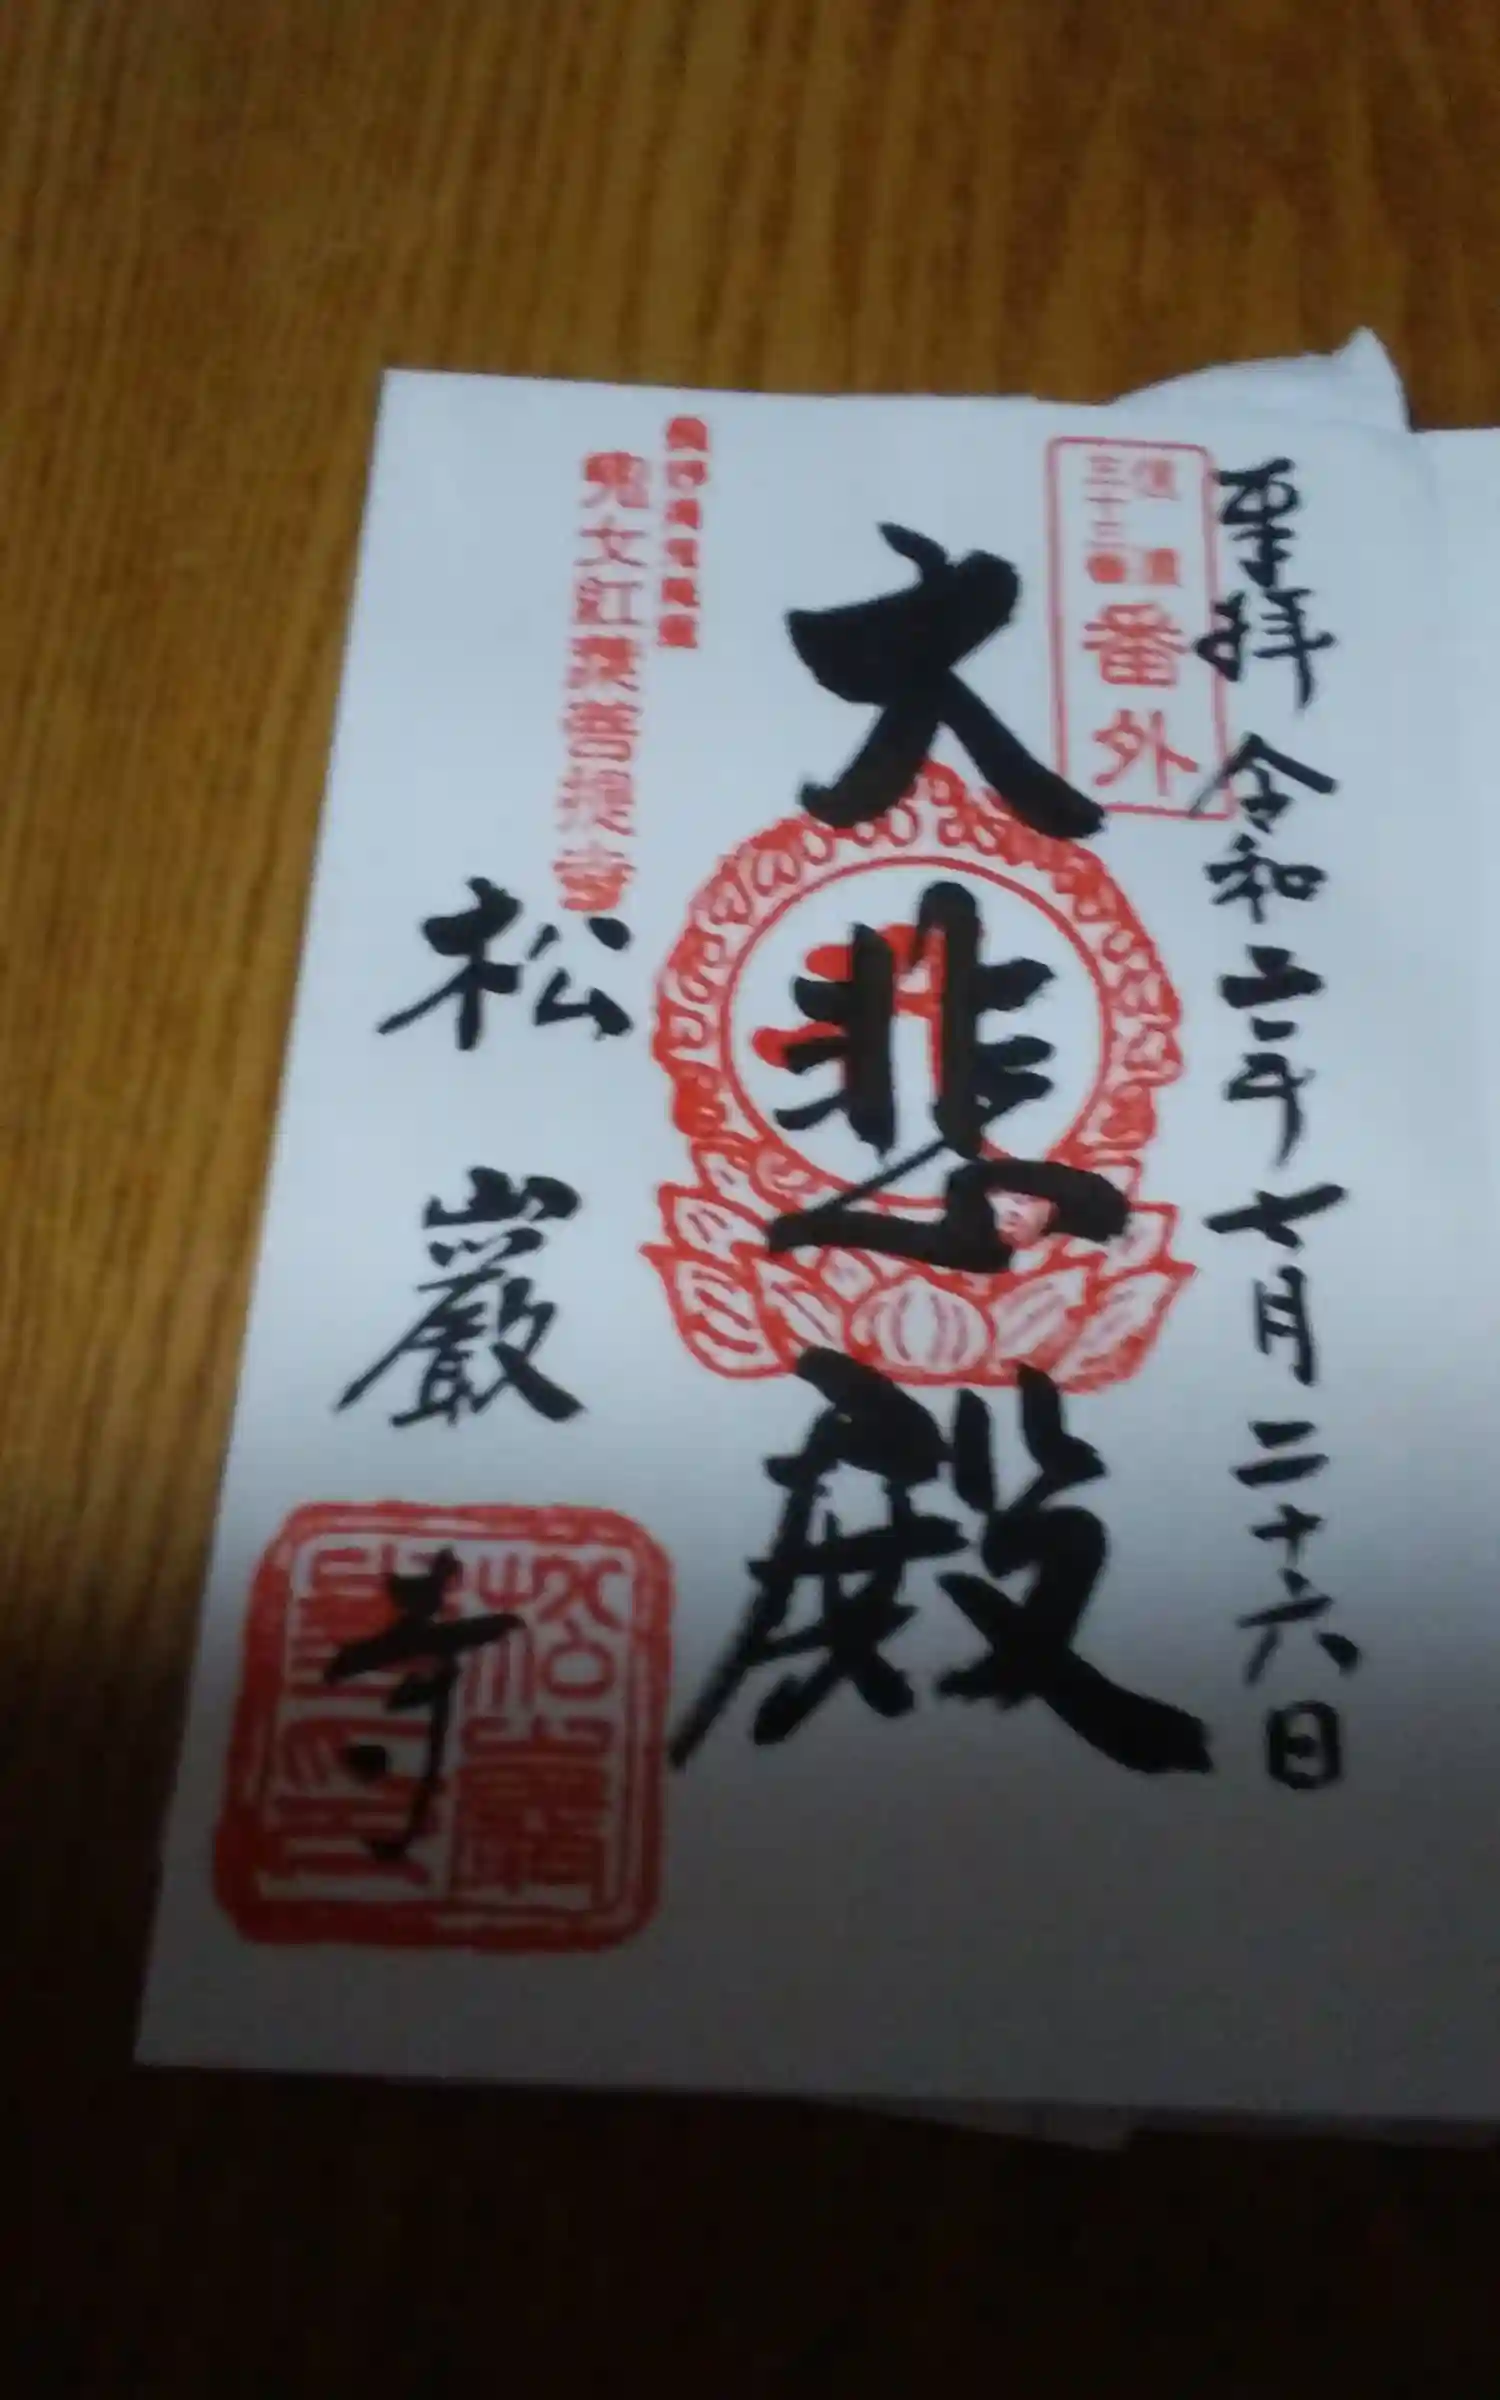 奉拝 令和二年七月二十六日
信濃
三十三番
番外
大悲殿
鬼女紅葉菩提寺
松巖寺